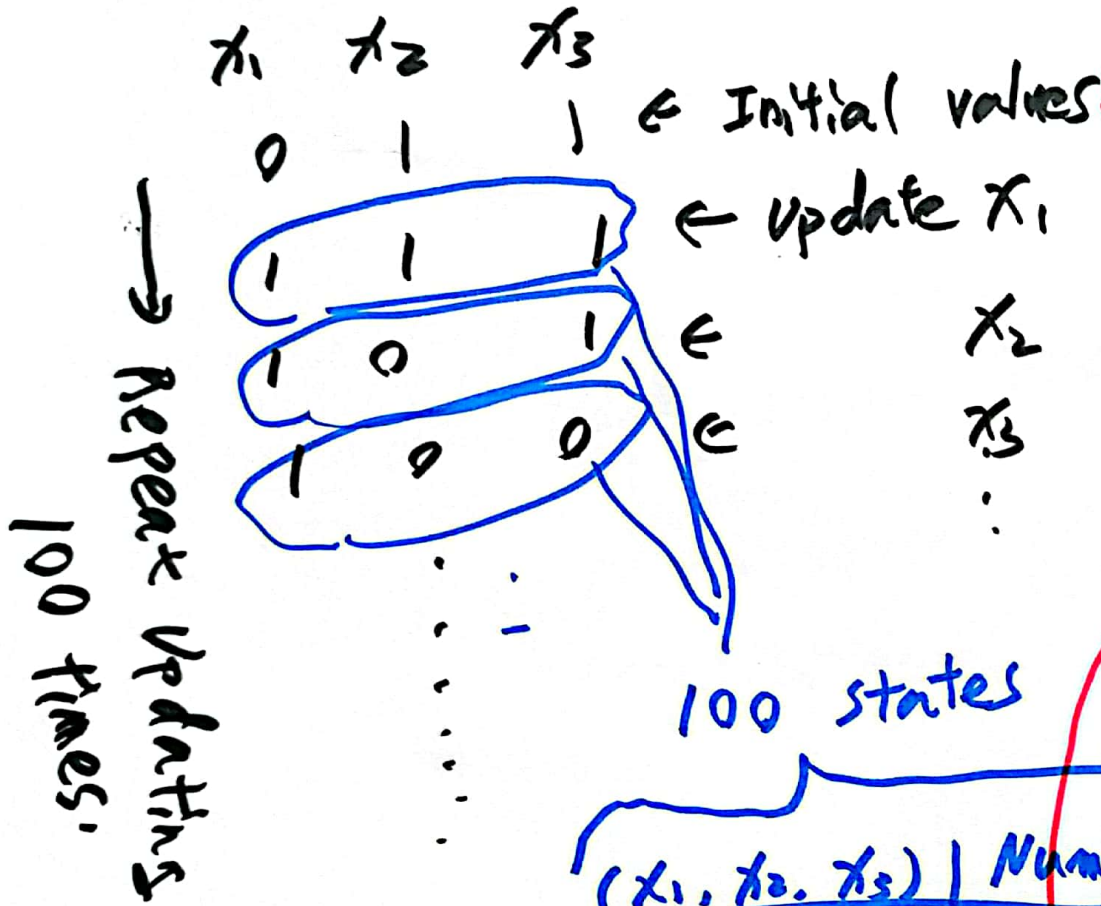 x₁ x₂ x₃
0 1 1 ← Initial values
1 1 1 ← update x₁
1 0 1 ← x₂
1 0 0 ← x₃
→ Repeat updating
100 times.
100 states
(x₁, x₂, x₃) | Num